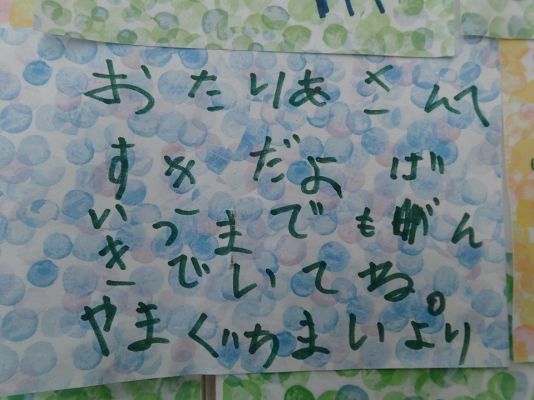 おたりあさんへ
すきだよ げ
いつまでもげん
きでいてね。
やまぐちまいより